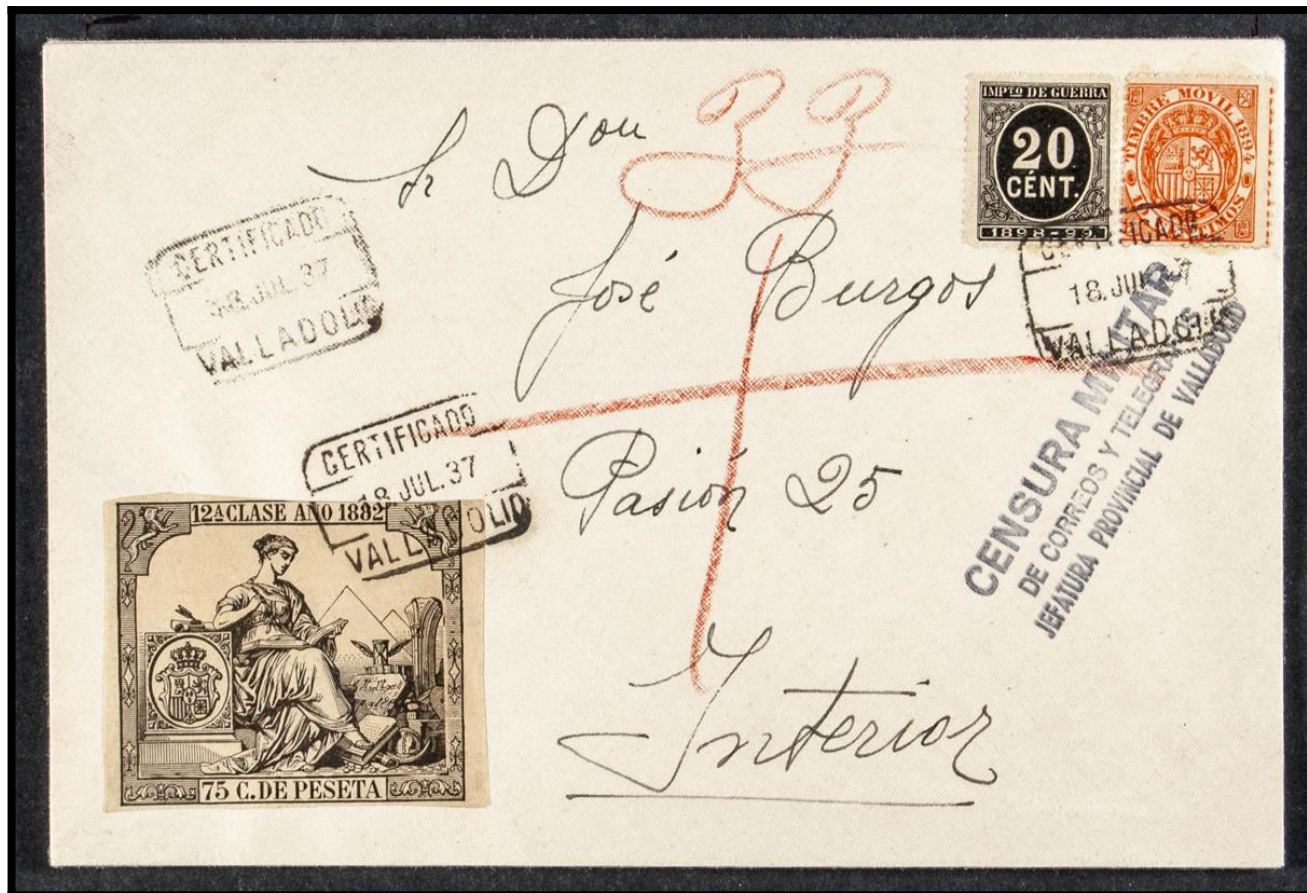 Sr Don
José Burgos
Pasión 25
Interior
IMPTO DE GUERRA
20
CÉNT.
1898-99
TIMBRE MÓVIL 1894
CERTIFICADO
18.JUL.37
VALLADOLID
CERTIFICADO
JUL.37
VALLADOLID
CERTIFICADO
18 JUL.37
VALLADOLID
CENSURA MILITAR
DE CORREOS Y TELEGRAFOS
JEFATURA PROVINCIAL DE VALLADOLID
12A CLASE AÑO 1882
75 C. DE PESETA